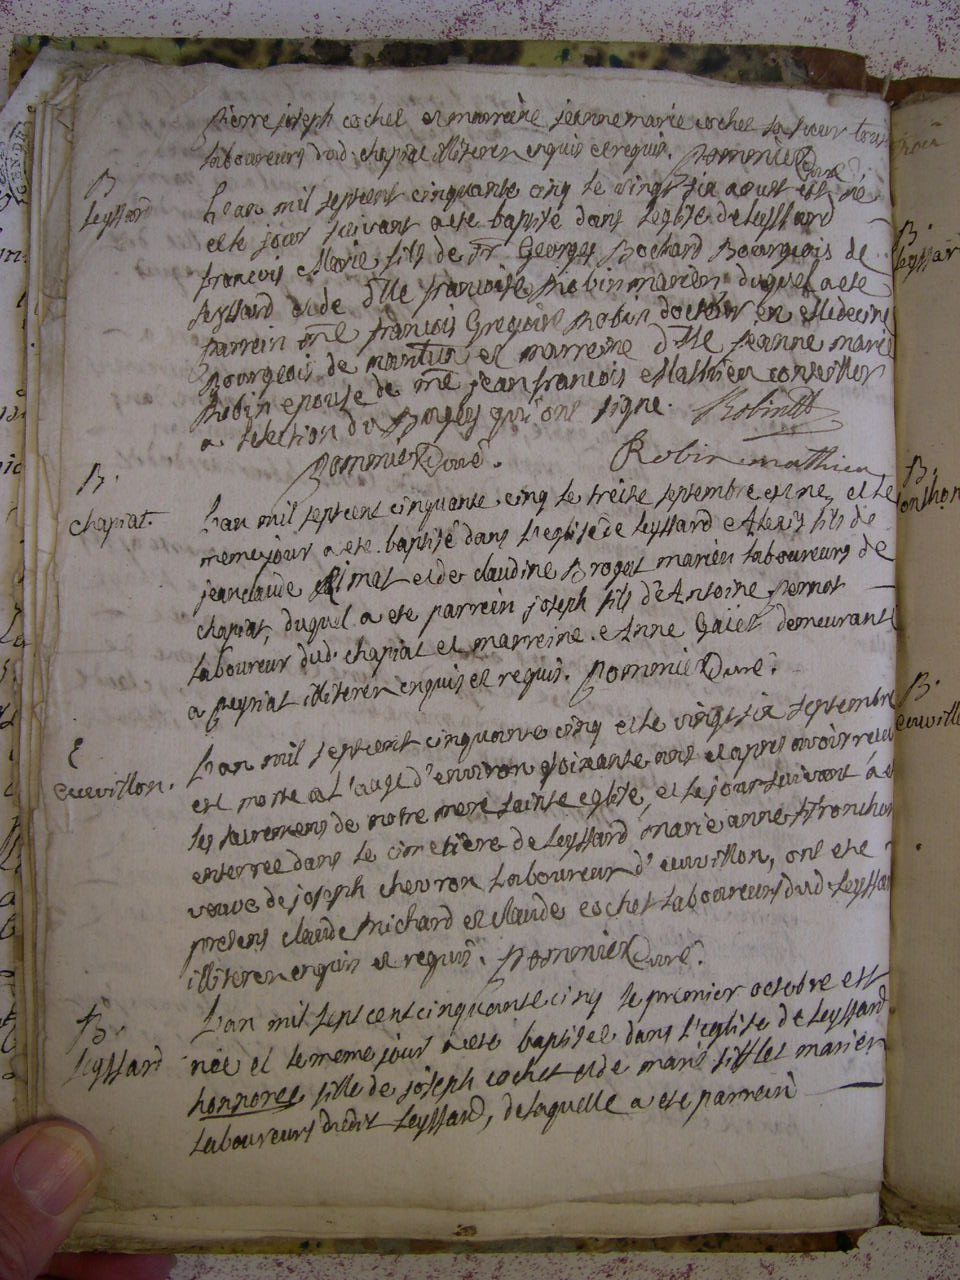 pierre joseph cochet et marreine jeanne marie cochet sa soeur tous
laboureurs dud. chapiat illiteren enquis et requis. Pommier Curé
B.
Leyssard
L'an mil septcent cinquante cinq le vingt six aoust est né
et le jour suivant a eté baptisé dans l'eglise de Leyssard
francois Marie fils de Sr George Bochard Bourgeois de
Leyssard et de dlle francoise Robin mariés duquel a eté
parrein me francois Gregoire Robin docteur en Medecine
Bourgeois de nantua et marreine dlle jeanne marie
Robin epouse de me jean francois Mathieu conseiller
a l'election du Bugey qui ont signe. Robin
Pommier Curé. Robin mathieu
B.
chapiat.
L'an mil septcent cinquante cinq le treise septembre est ne, et le
meme jour a ete baptisé dans l'eglise de Leyssard Alexis fils de
jean claude et de claudine Broget mariés laboureurs de
chapiat, duquel a ete parrein joseph fils d'Antoine pernot
laboureur dud. chapiat et marreine Anne Gaiet demeurante
a peyriat illiteren enquis et requis. Pommier Curé.
E
cuvillon.
L'an mil septcent cinquante cinq et le vingt six septembre
est morte a l'aage d'environ soixante ans et apres avoir receu
les sacremens de notre mere sainte eglise, et le jour suivant a eté
enterree dans le cimetiere de Leyssard marie anne Tronchon
veuve de joseph chevron laboureur d'cuvillon, ont ete
presens claude michard et claude cochet laboureurs dud. Leyssard
illiteren enquis et requis. Pommier Curé.
B.
Leyssard
L'an mil septcent cinquante cinq le premier octobre est
née et le meme jour a eté baptisee dans l'eglise de Leyssard
honnoree fille de joseph cochet et de marie sifflet mariés
laboureurs dudit Leyssard, de laquelle a ete parrein
B.
Leyssar
B.
onchon
B.
cuvill